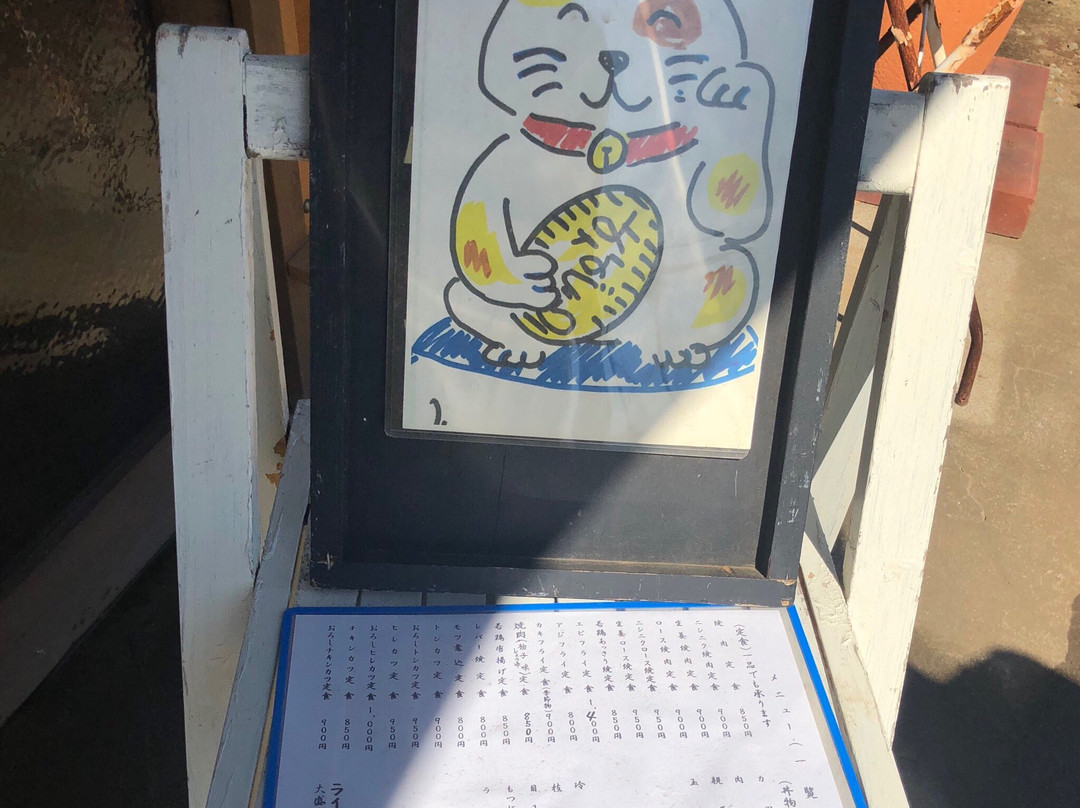 メニュー(一覧
(定食)一品でも承ります
焼肉定食 850円
ニンニク焼肉定食 900円
生姜焼肉定食 900円
ロース焼定食 900円
ニンニクロース焼定食 950円
生姜ロース焼定食 950円
若鶏あっさり焼定食 850円
エビフライ定食 1,400円
アジフライ定食 800円
カキフライ定食(季節物) 900円
焼肉(柚子味)しょう油定食 850円
若鶏唐揚げ定食 850円
レバー焼定食 800円
モツ煮込定食 800円
トンカツ定食 900円
おろしトンカツ定食 950円
ヒレカツ定食 950円
おろしヒレカツ定食 1,000円
チキンカツ定食 850円
おろしチキンカツ定食 900円
(丼物
カ
肉
親
玉
冷
枝
目
もつ
ラ
ライ
大盛